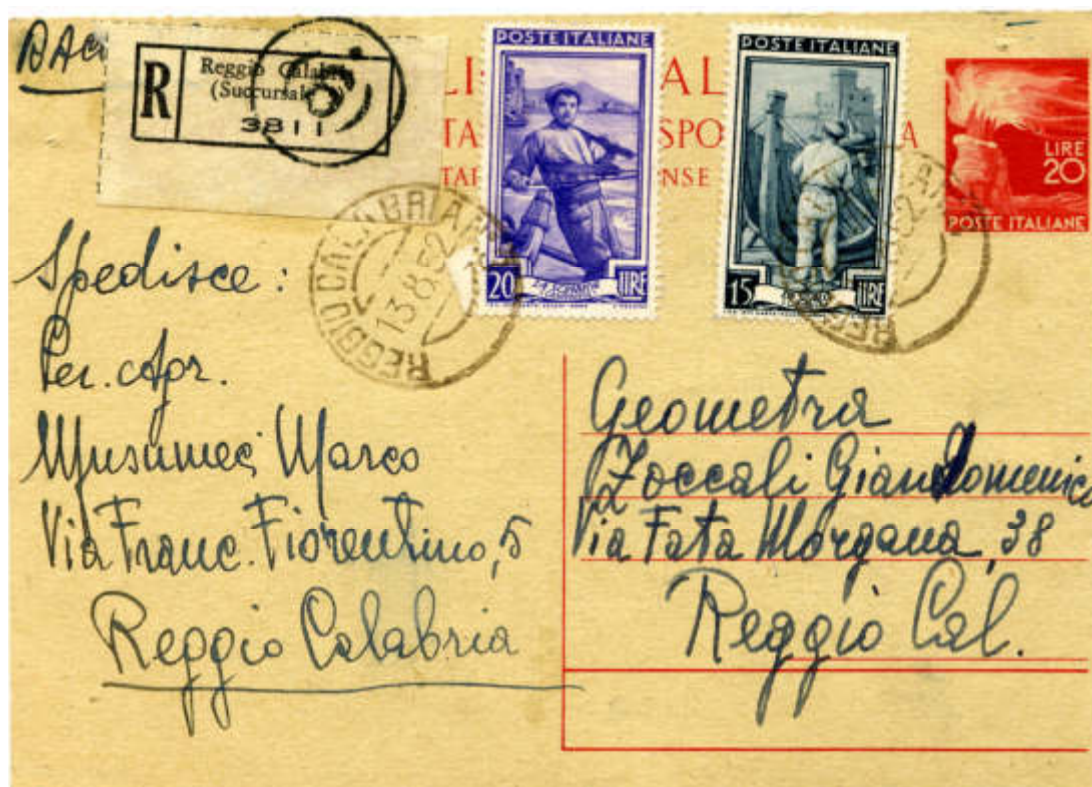 R
Reggio Calabria
(Succursale
3811
POSTE ITALIANE
20 LIRE
POSTE ITALIANE
15 LIRE
LIRE
20
POSTE ITALIANE
REGGIO CALABRIA
13.8.52
Spedisce:
Per. Agr.
Musumeci Marco
Via Franc. Fiorentino, 5
Reggio Calabria
Geometra
Zoccali Giandomenico
Via Fata Morgana, 38
Reggio Cal.